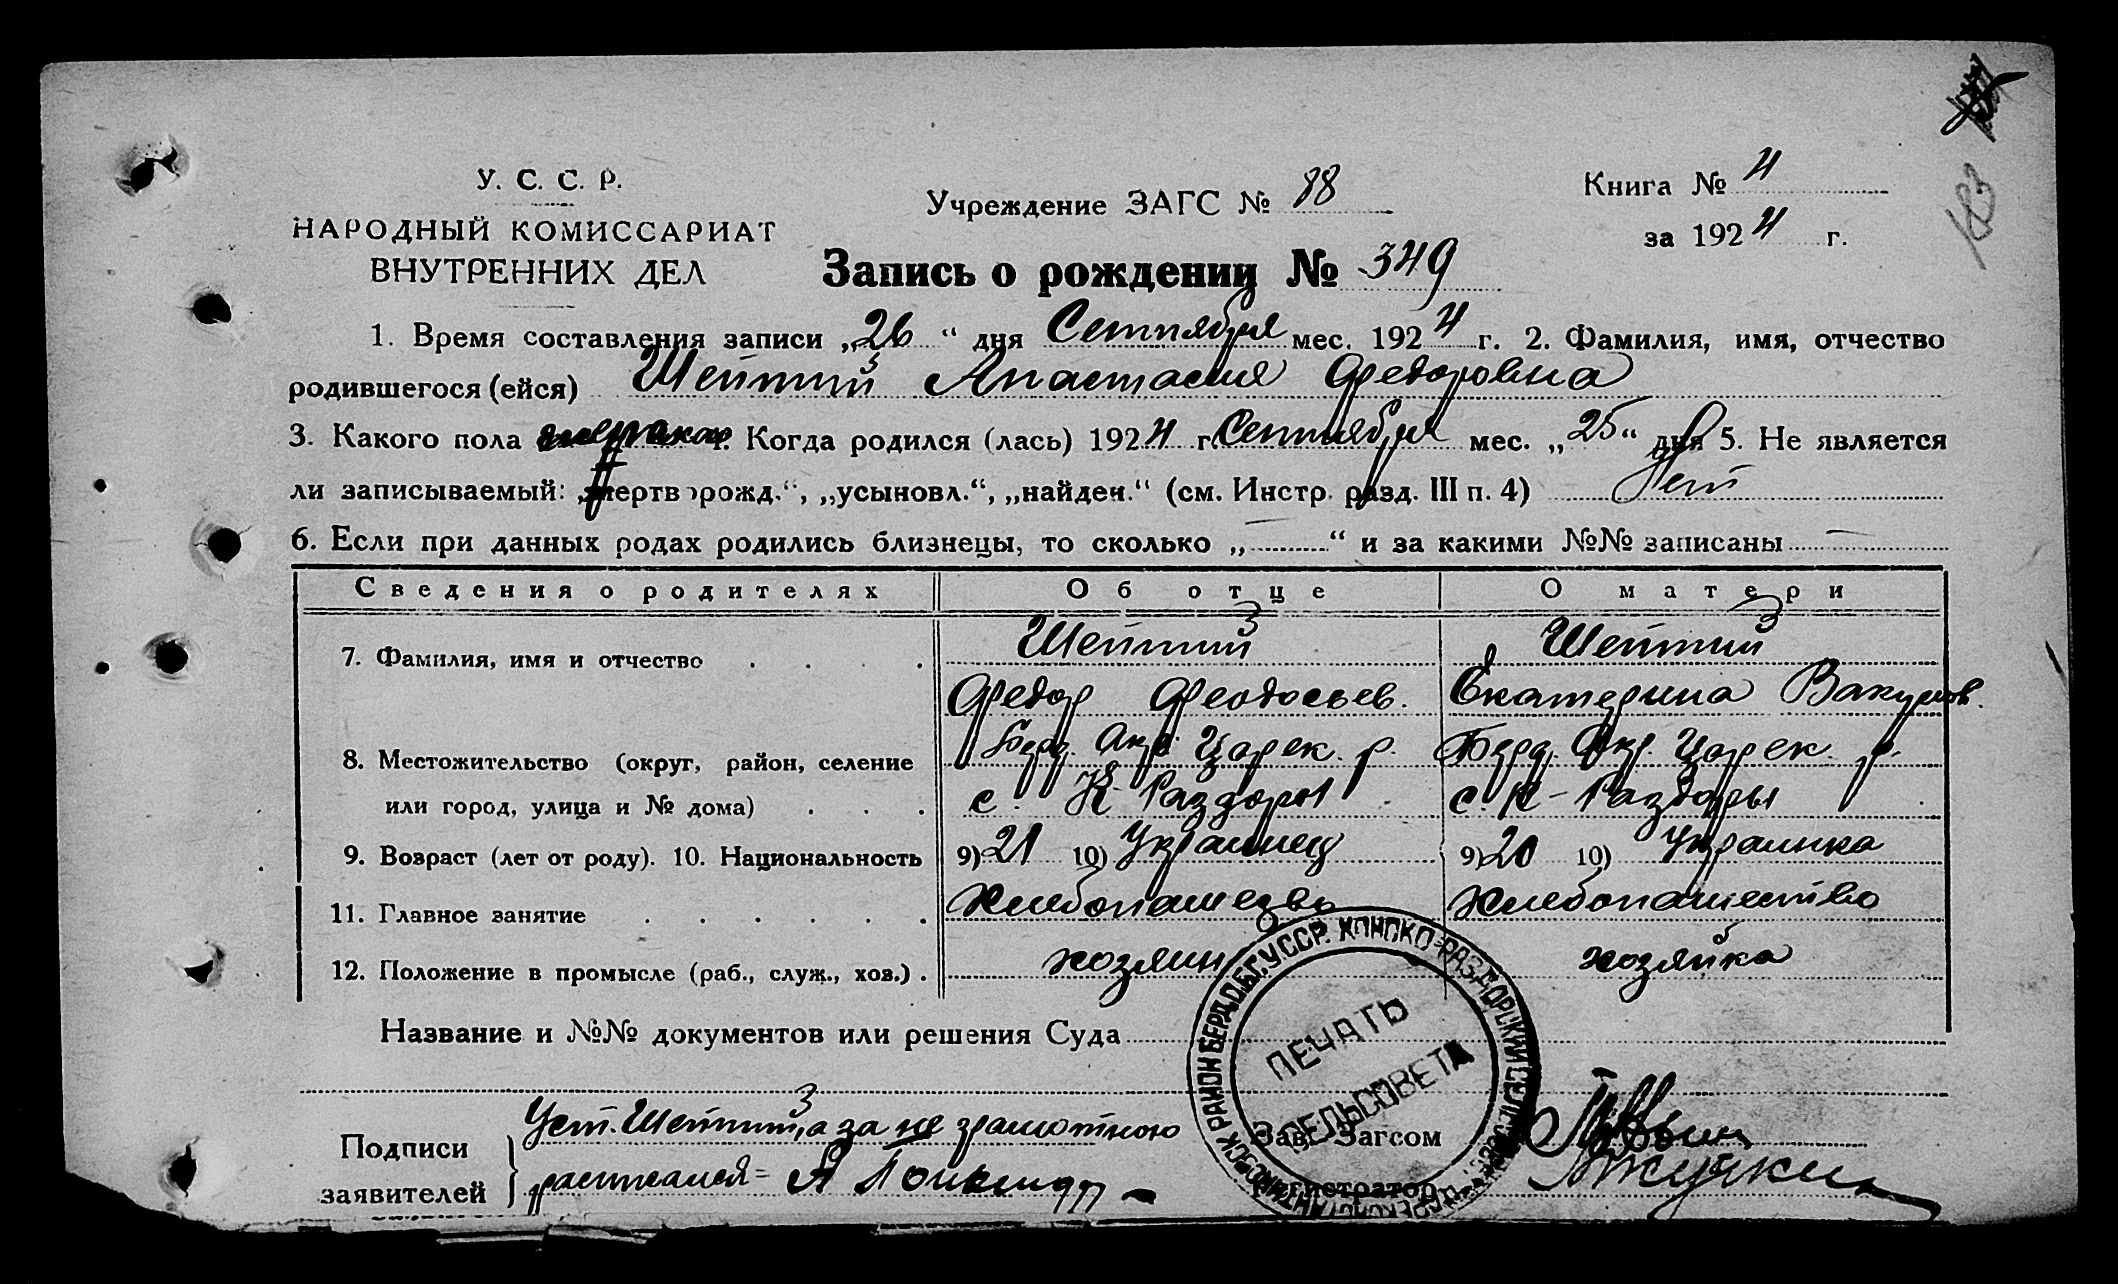 У. С. С. Р.
НАРОДНЫЙ КОМИССАРИАТ
ВНУТРЕННИХ ДЕЛ
Учреждение ЗАГС № 88
Книга № 4
за 1924 г.
183
Запись о рождении № 349
1. Время составления записи „26“ дня Сентября мес. 1924 г. 2. Фамилия, имя, отчество
родившегося (ейся) Шептий Анастасия Федоровна
3. Какого пола 4. Когда родился (лась) 1924 г. Сентября мес. „25“ дня 5. Не является
ли записываемый: „мертворожд.“, „усыновл.“, „найден.“ (см. Инстр. разд. III п. 4) Нет
6. Если при данных родах родились близнецы, то сколько „ — “ и за какими №№ записаны —
Сведения о родителях Об отце О матери
7. Фамилия, имя и отчество . . . . Шептий Шептий
Федор Феодосьев. Екатерина Вакулов.
8. Местожительство (округ, район, селение Берд. Окр. Царек. р. Берд. Окр. Царек. р.
или город, улица и № дома) . . . с. К-Раздоры с. К-Раздоры
9. Возраст (лет от роду). 10. Национальность 9) 21 10) Украинец 9) 20 10) Украинка
11. Главное занятие . . . . . . Хлебопашество Хлебопашество
12. Положение в промысле (раб., служ., хоз.) . хозяин хозяйка
Название и №№ документов или решения Суда
ПЕЧАТЬ
СЕЛЬСОВЕТА
Подписи
заявителей
Уст. Шептий, а за не грамотного
расписался = А
Зав. Загсом
Регистратор